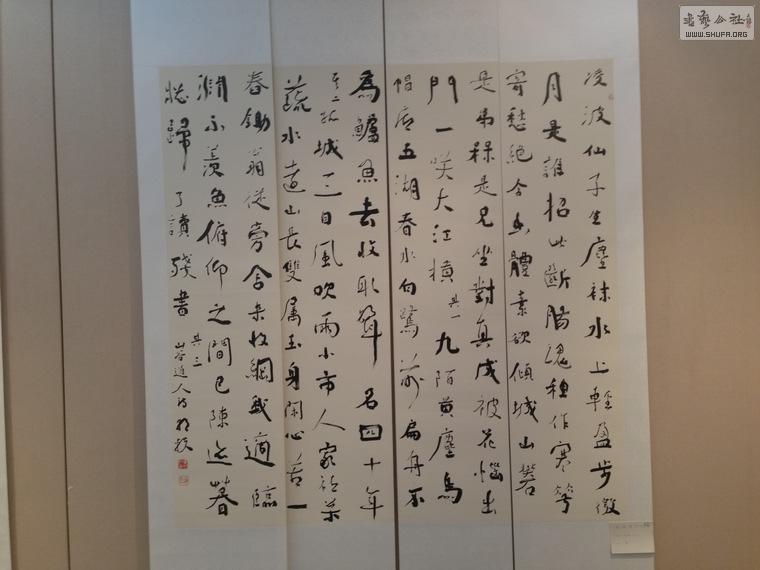 凌波仙子生塵袜水上輕盈步微
月是誰招此斷腸魂種作寒華
寄愁絕含香體素欲傾城山礬
是弟楳是兄坐對真成被花惱出
門一笑大江橫 其一 九陌黃塵烏
帽底五湖春水白鷗前扁舟不
為鱸魚去收取聲名四十年
其二 孤城三日風吹雨小市人家秖菜
蔬水遠山長雙屬玉身閑心苦一
舂鋤翁從旁舍來收網我適臨
淵不羨魚俯仰之間已陳迹暮
牕歸了讀殘書 其三 山谷道人詩
書藝公社
WWW.SHUFA.ORG